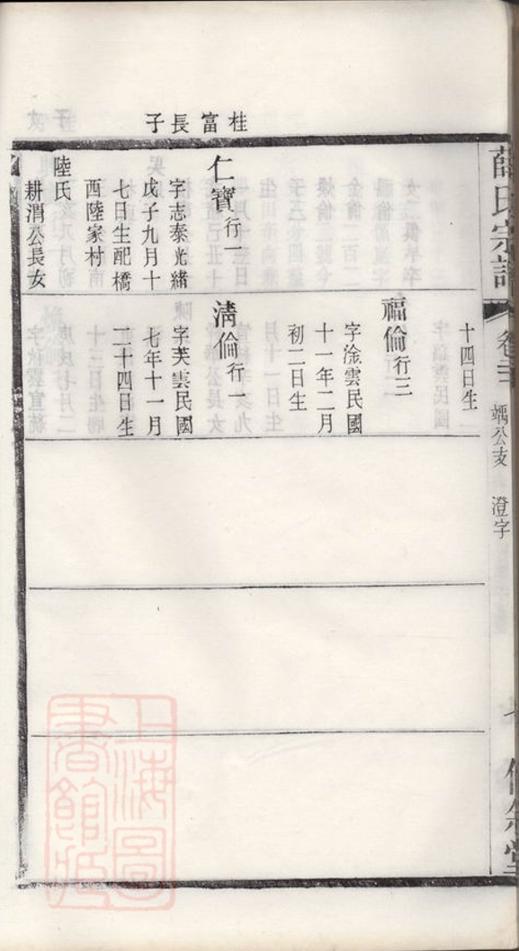 薛氏宗譜
卷三
瑀公支
澄字
桂富長子
仁寶行一
字志泰光緒
戊子九月十
七日生配橋
西陸家村
陸氏
耕渭公長女
十四日生
福倫行三
字淦雲民國
十一年二月
初二日生
清倫行一
字芙雲民國
七年十一月
二十四日生
上海圖
書館藏